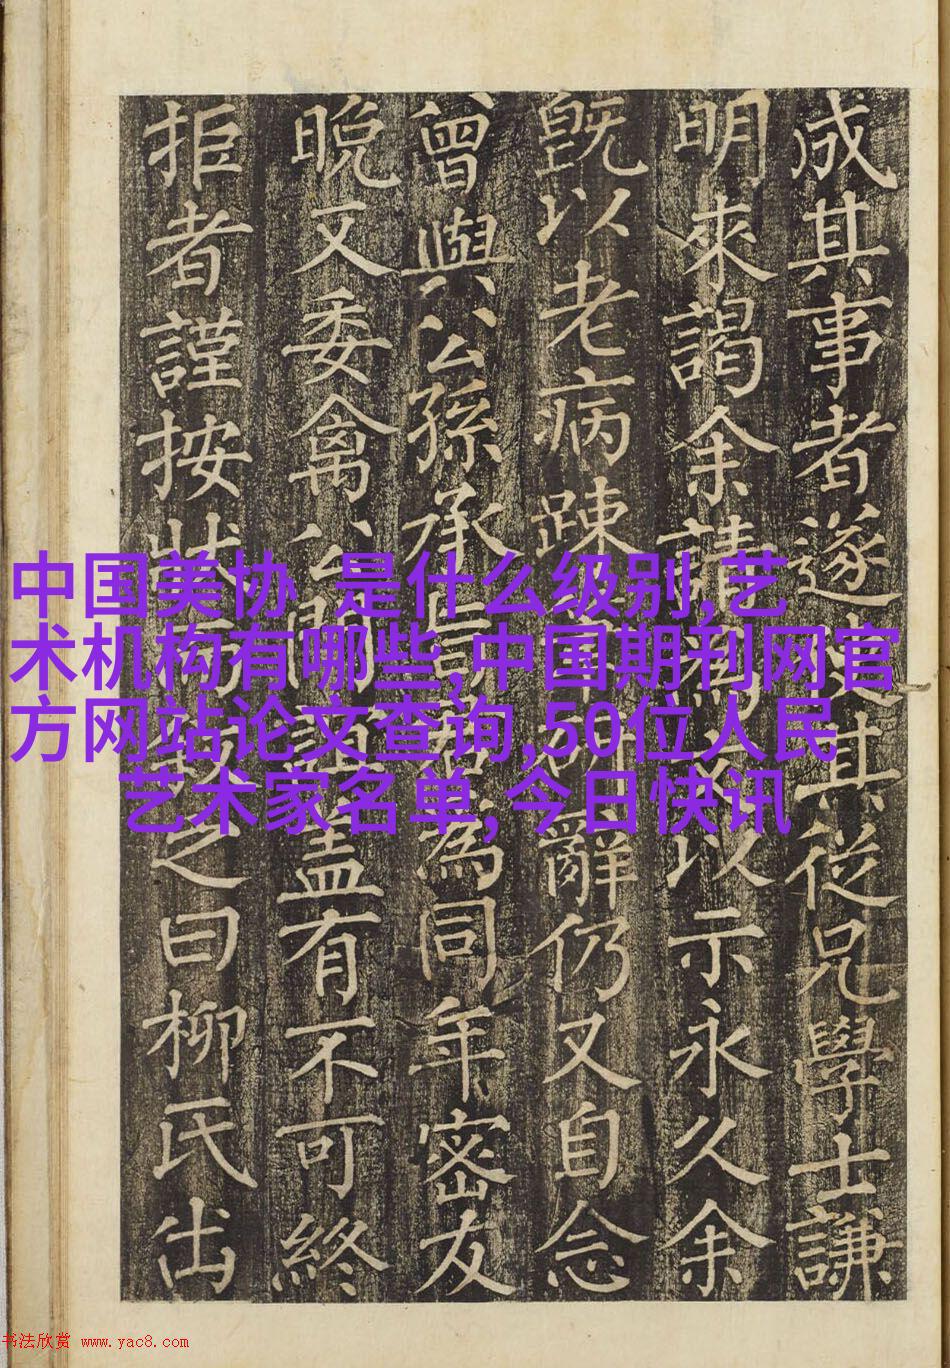 成其事者遂其從兄學士謙
明來謁余請以示永久余
既以老病踈辭仍又自念
曾與公孫承為同年密友
晚又委禽公門盖有不可終
拒者謹按狀之曰柳氏出
中国美协 是什么级别,艺
术机构有哪些,中国期刊网官
方网站论文查询,50位人民
艺术家名单,今日快讯
书法欣赏 www.yac8.com